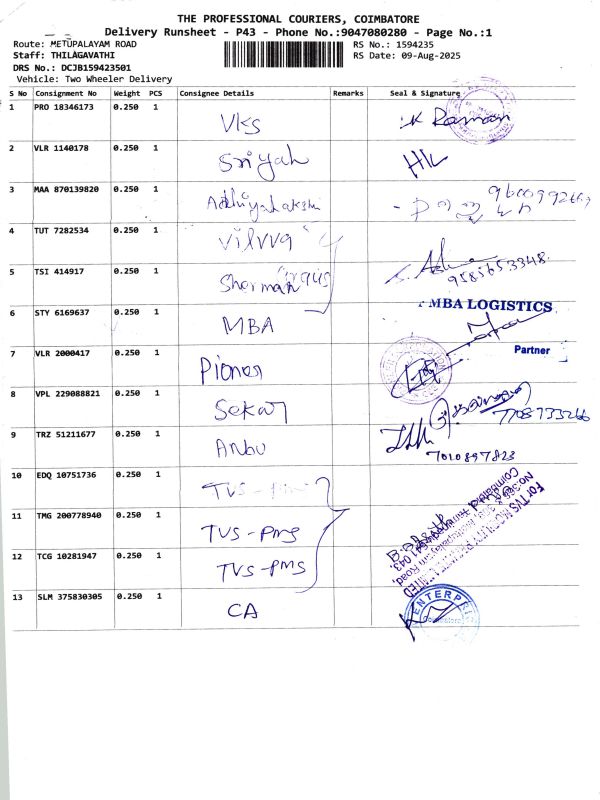 THE PROFESSIONAL COURIERS, COIMBATORE
Delivery Runsheet - P43 - Phone No.:9047080280 - Page No.:1
Route: METUPALAYAM ROAD RS No.: 1594235
Staff: THILAGAVATHI RS Date: 09-Aug-2025
DRS No.: DCJB159423501
Vehicle: Two Wheeler Delivery
S No Consignment No Weight PCS Consignee Details Remarks Seal & Signature
1 PRO 18346173 0.250 1 VKS K Raman
2 VLR 1140178 0.250 1 Sriyah
3 MAA 870139820 0.250 1 9600992667
4 TUT 7282534 0.250 1 Vilvva
5 TSI 414917 0.250 1 Sherman 9585653348
6 STY 6169637 0.250 1 MBA MBA LOGISTICS
Partner
7 VLR 2000417 0.250 1 Pioner
8 VPL 229088821 0.250 1 Sekar 7708733266
9 TRZ 51211677 0.250 1 Anbu 7010897823
10 EDQ 10751736 0.250 1 TVS-PMS
11 TMG 200778940 0.250 1 TVS-PMS
12 TCG 10281947 0.250 1 TVS-PMS
For TVS
Coimbatore
13 SLM 375830305 0.250 1 CA
ENTERPRI